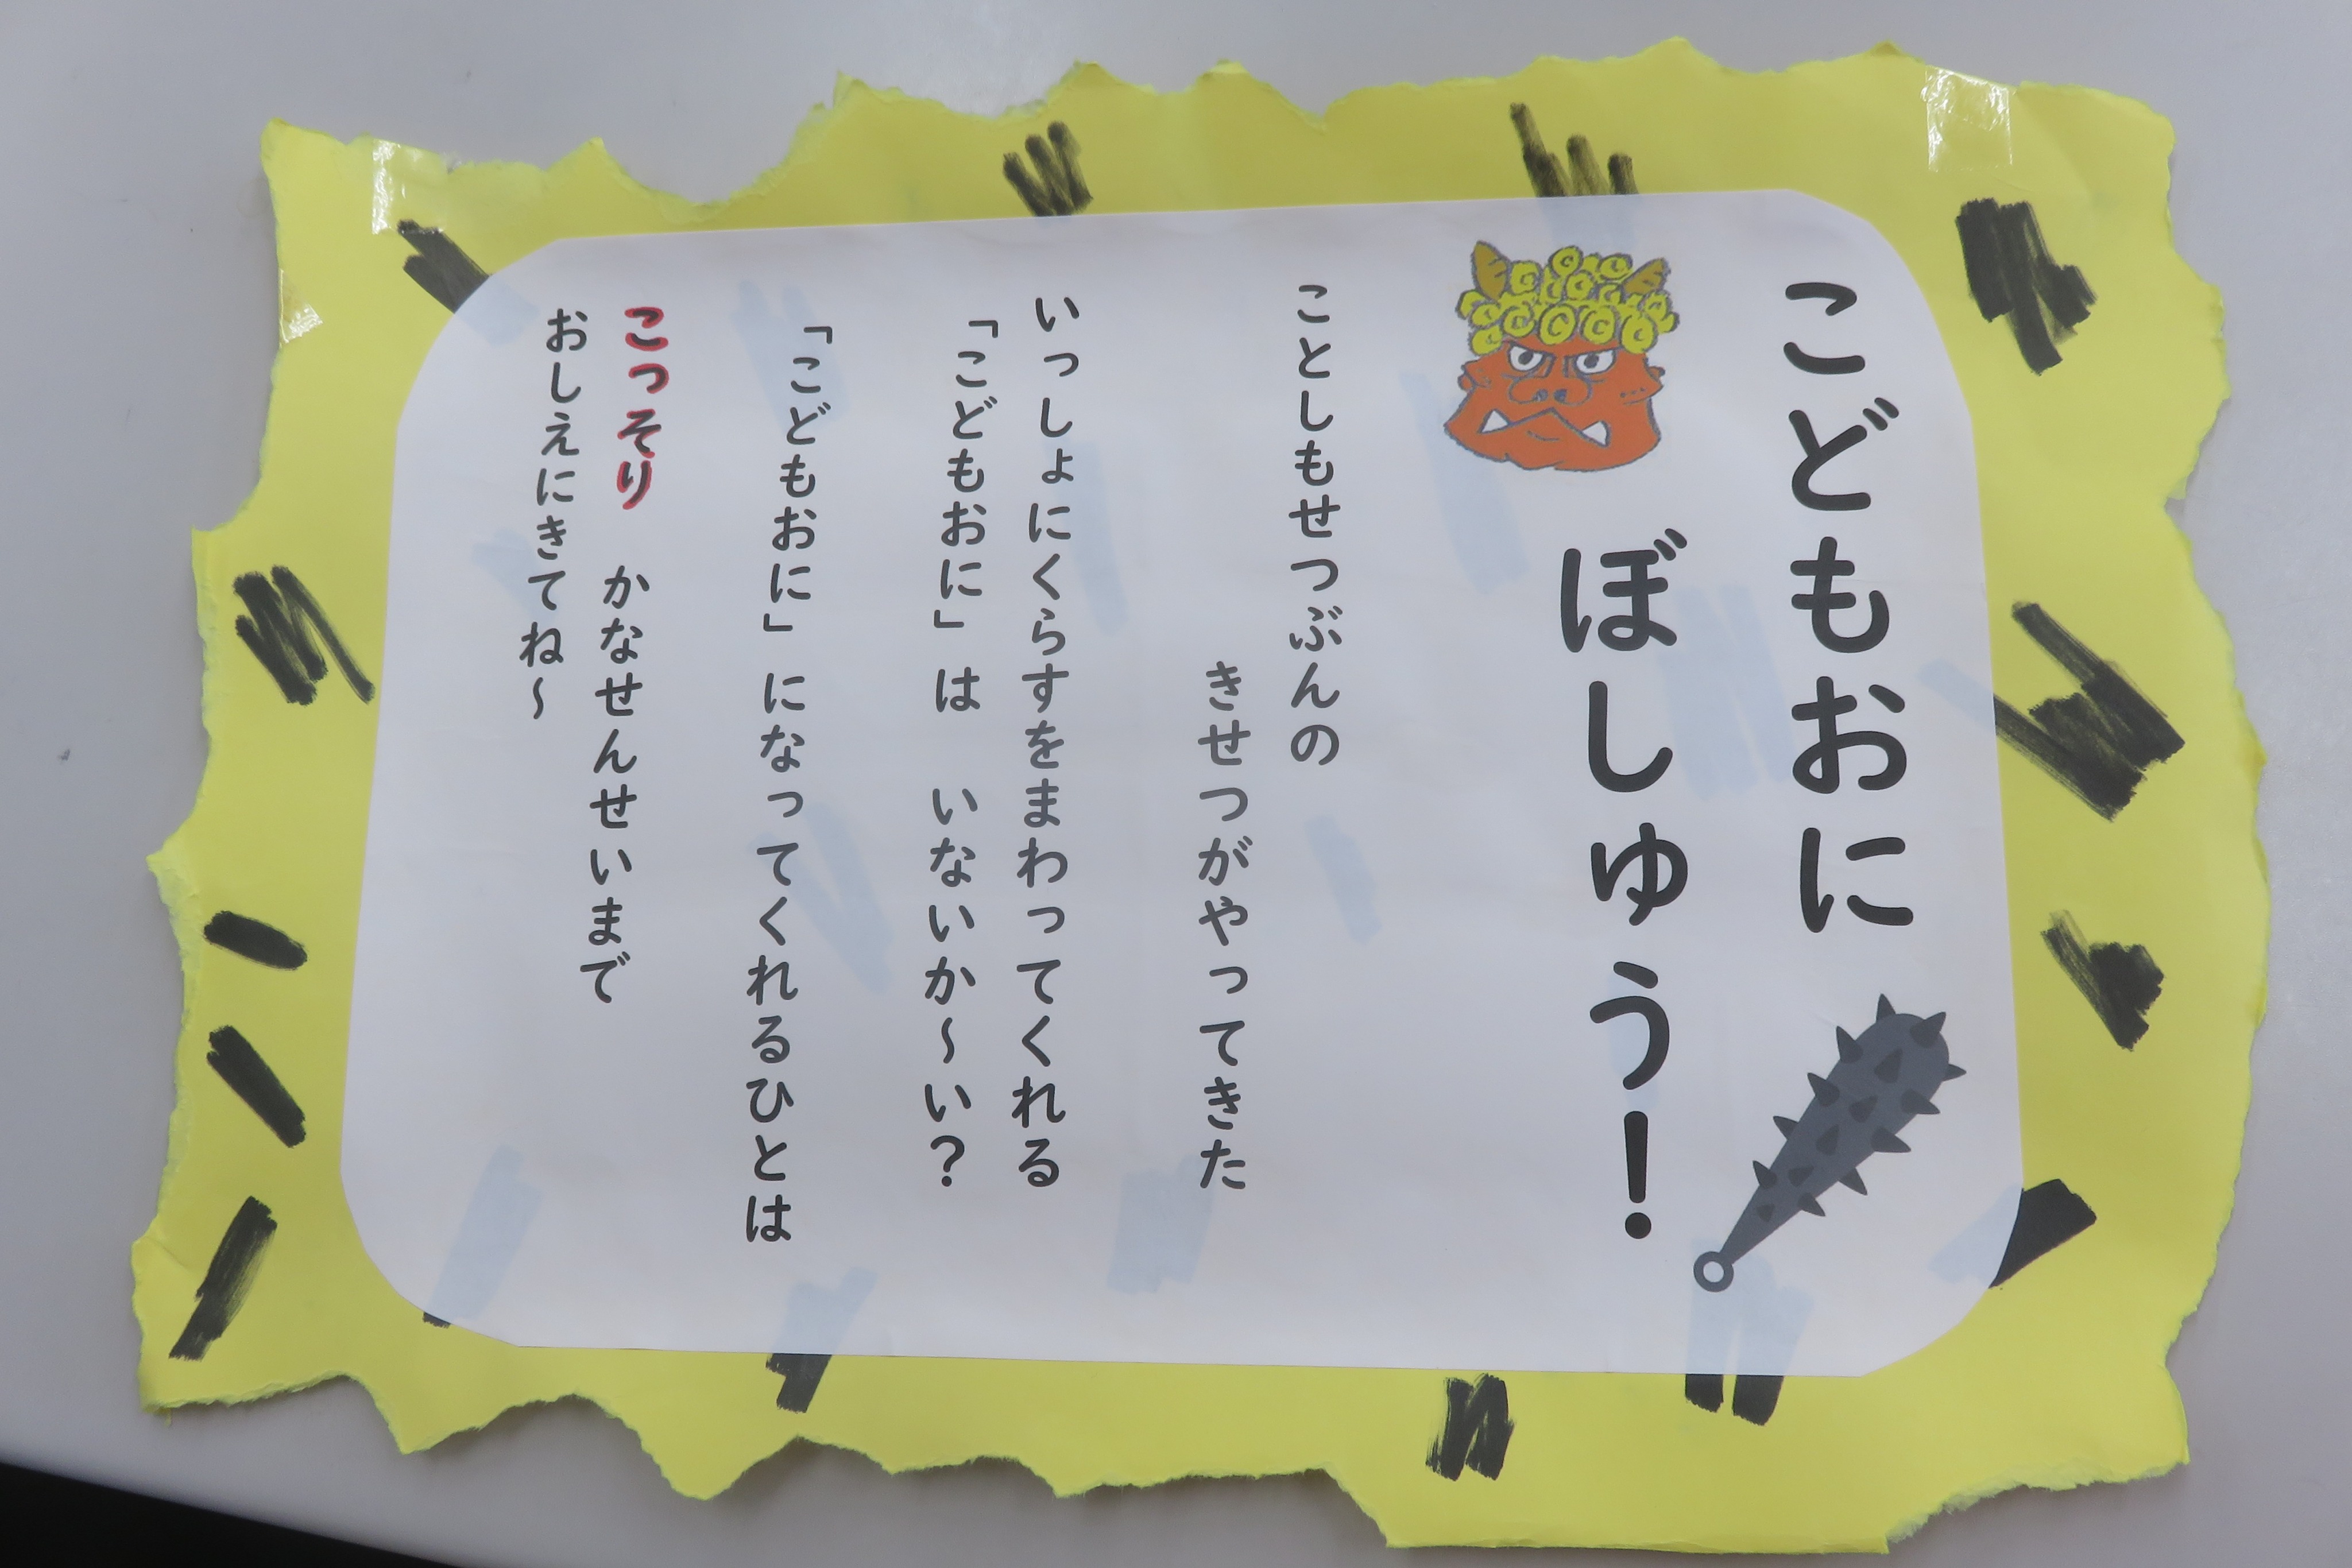 こどもおに
ぼしゅう！
ことしもせつぶんの
きせつがやってきた
いっしょにくらすをまわってくれる
「こどもおに」は　いないか～い？
「こどもおに」になってくれるひとは
こっそり　かなせんせいまで
おしえにきてね～